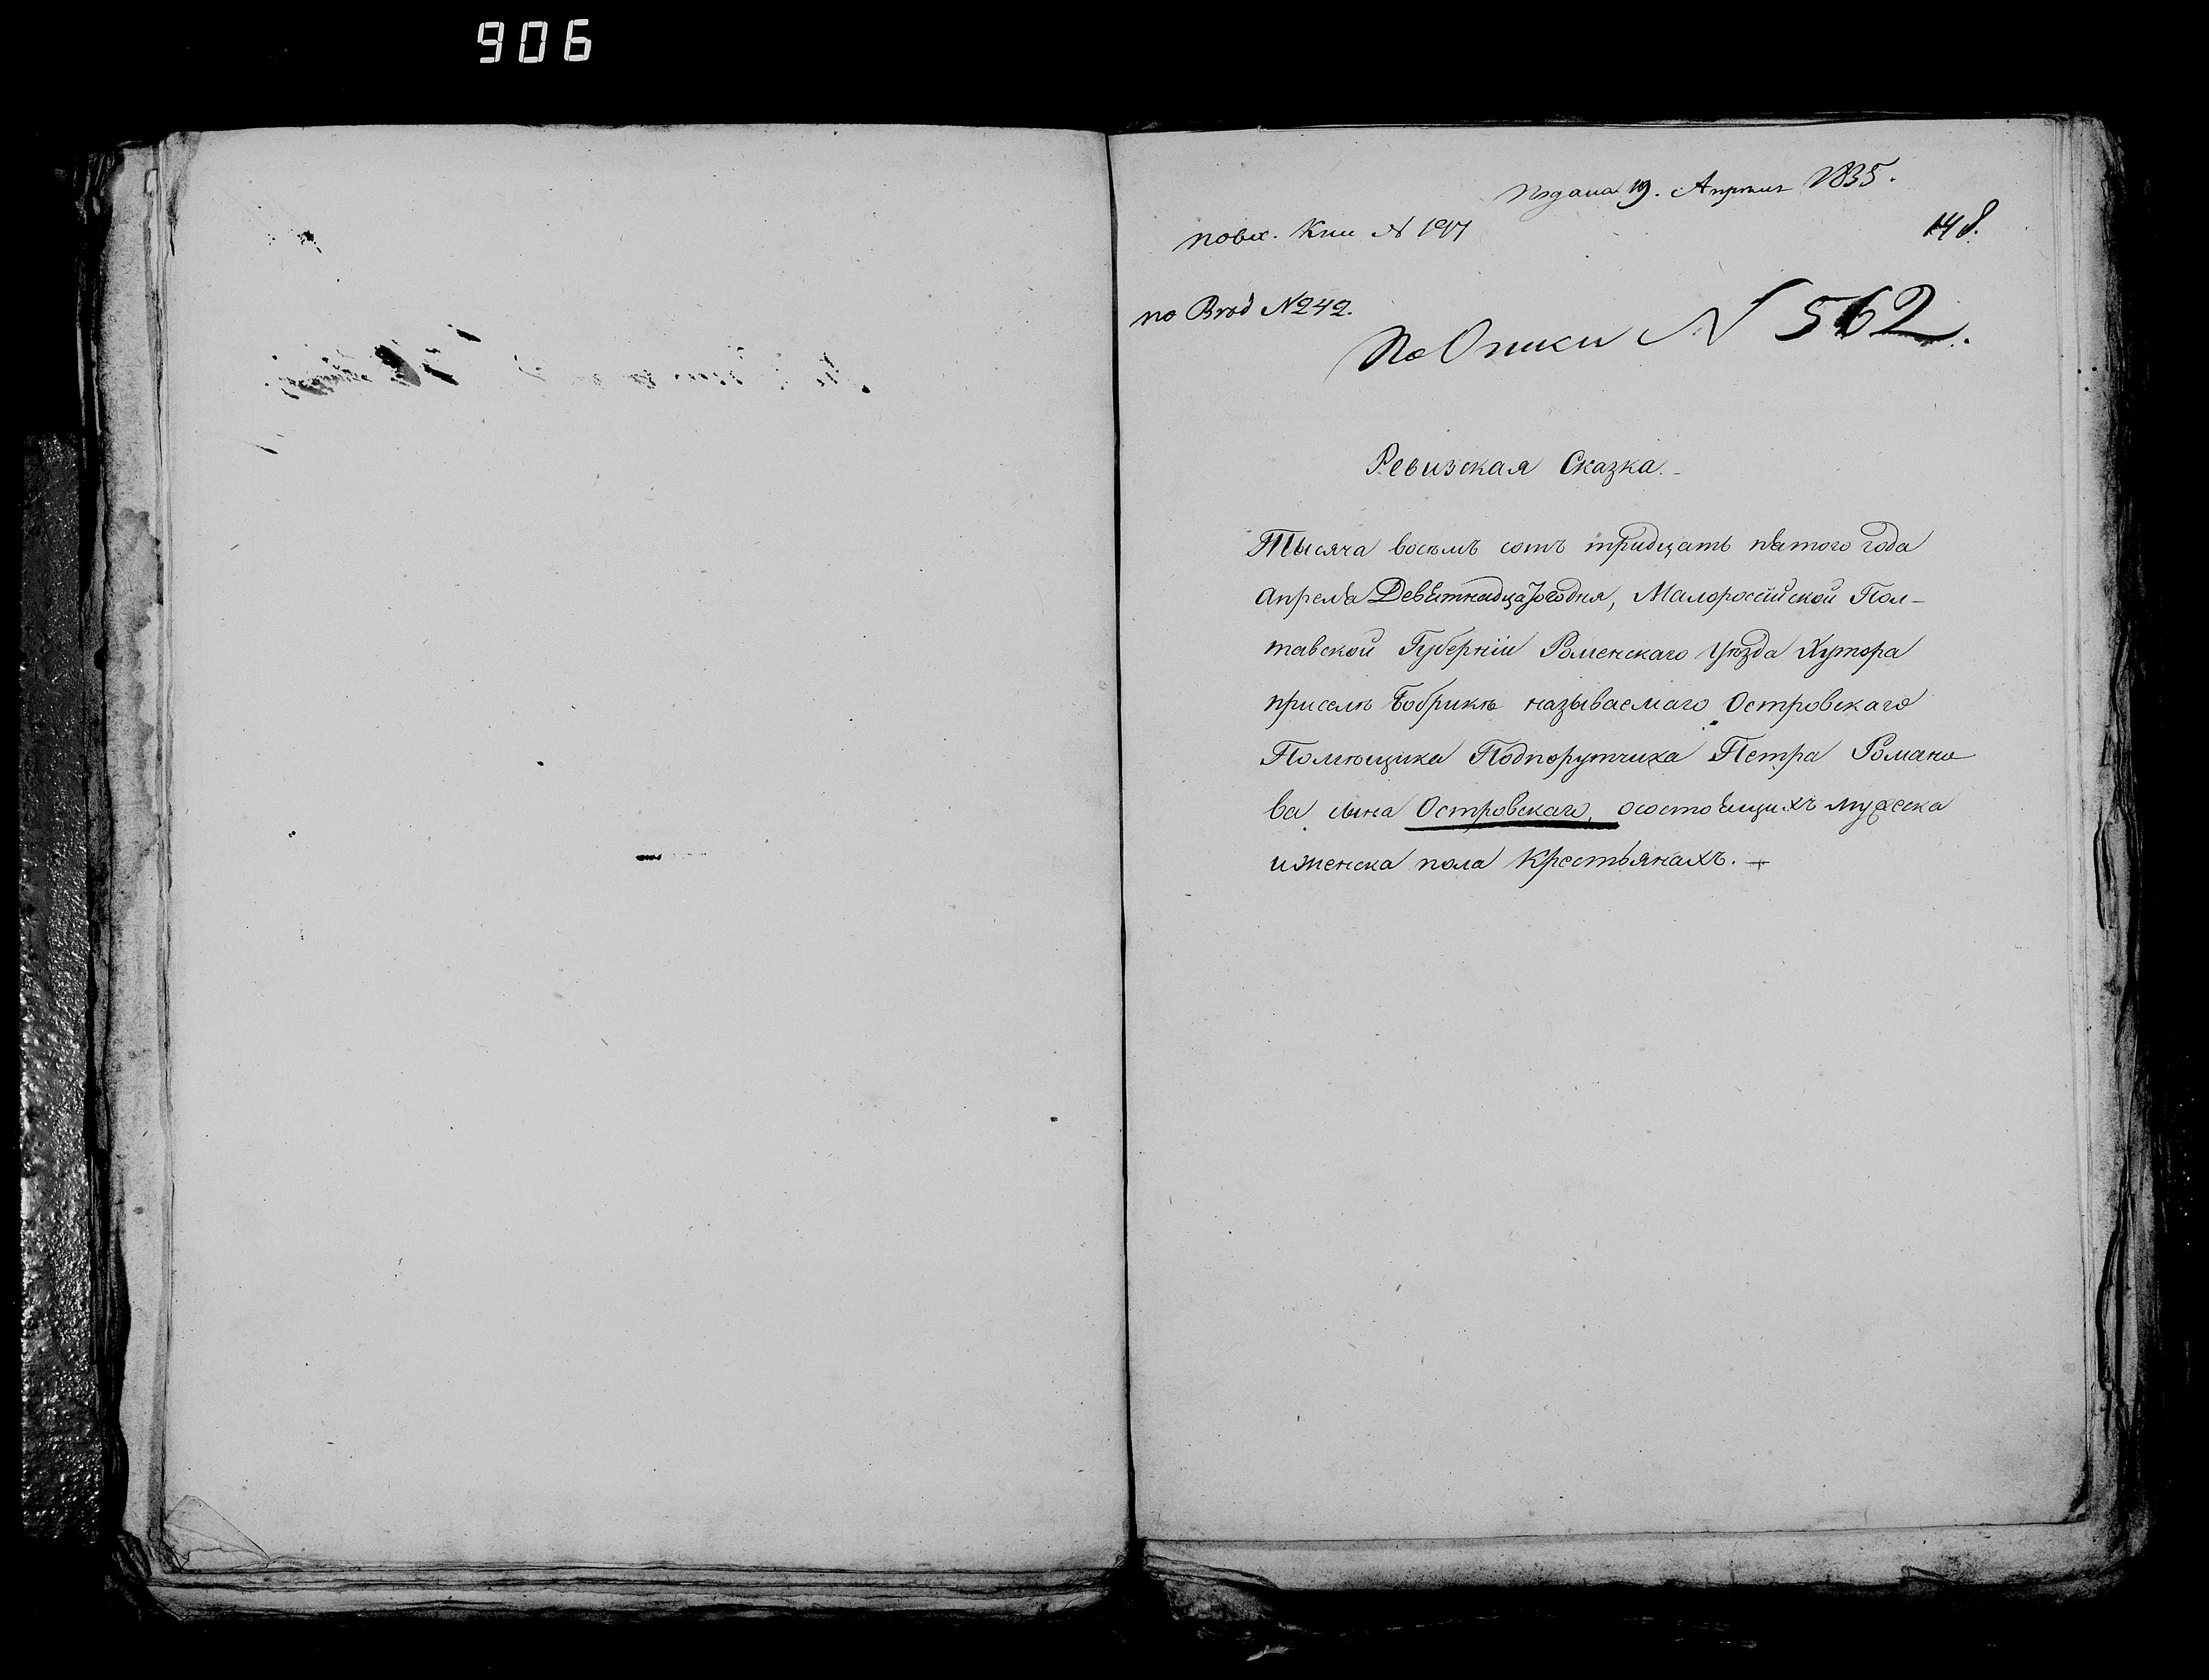 906
Подана 19. Апреля 1835.
повх. Кни № 197
148.
по Вѣд № 242.
По Описи № 562.
Ревизская Сказка.
Тысяча восемъ сотъ тридцать пятого года
апреля Девятнадцатогодня, Малороссійской Пол-
тавской Губерніи Роменскаго уѣзда Хутора
приселѣ Бобрикѣ называемаго Островскаго
Помѣщика Подпорутчика Петра Романо
ва сына Островскаго, осостоящихъ мужеска
иженска пола Крестьянахъ.